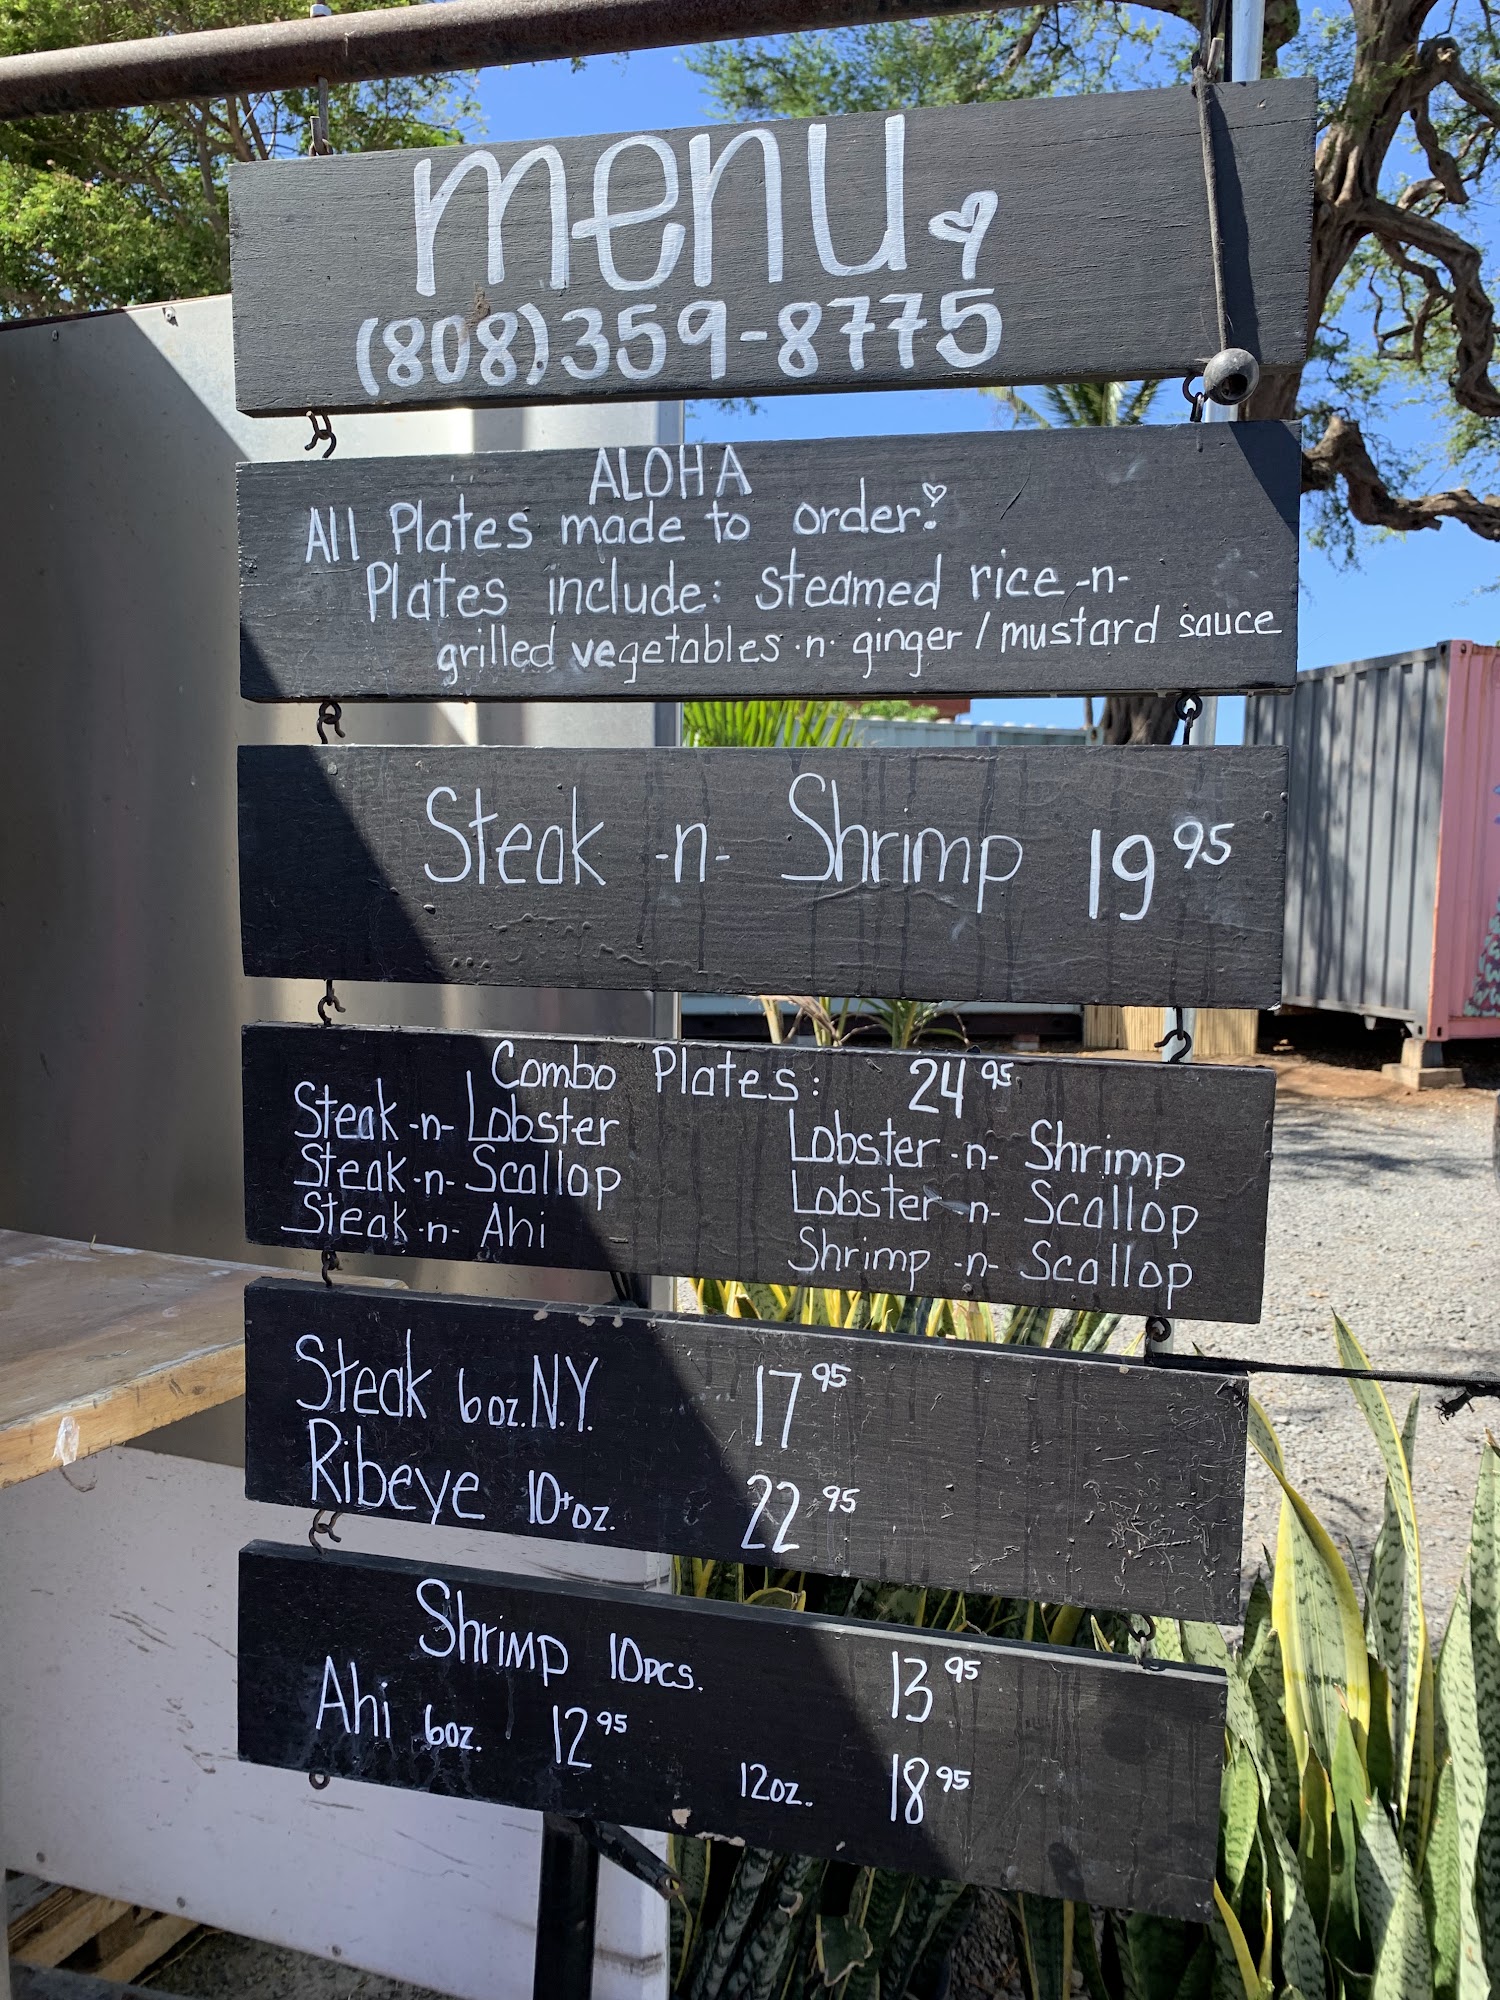 menu
(808)359-8775
ALOHA
All Plates made to order!
Plates include: steamed rice -n-
grilled vegetables -n- ginger / mustard sauce
Steak -n- Shrimp 19 95
Combo Plates: 24 95
Steak -n- Lobster
Steak -n- Scallop
Steak -n- Ahi
Lobster -n- Shrimp
Lobster -n- Scallop
Shrimp -n- Scallop
Steak 6oz. N.Y. 17 95
Ribeye 10+oz. 22 95
Shrimp 10pcs. 13 95
Ahi 6oz. 12 95 12oz. 18 95